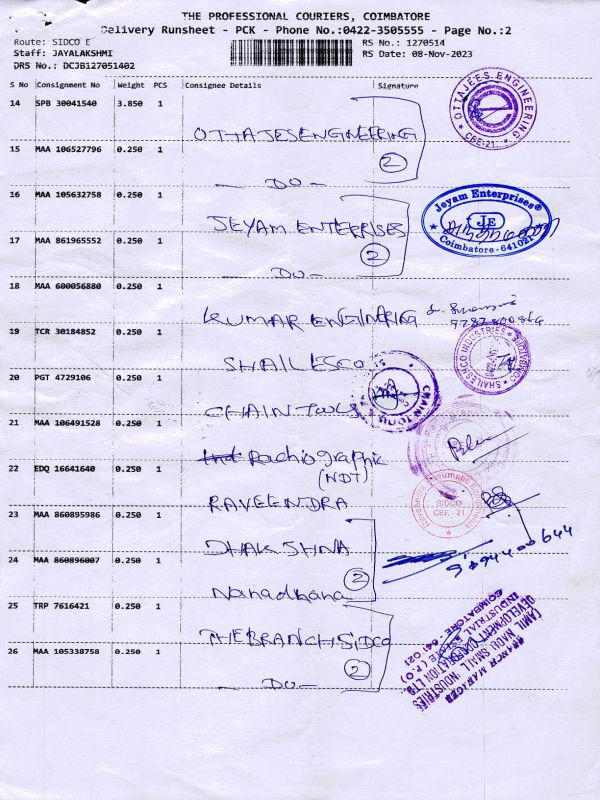 THE PROFESSIONAL COURIERS, COIMBATORE
Delivery Runsheet - PCK - Phone No.:0422-3505555 - Page No.:2
Route: SIDCO E
RS No.: 1270514
Staff: JAYALAKSHMI
RS Date: 08-Nov-2023
DRS No.: DCJB127051402
S No Consignment No Weight PCS Consignee Details Signature
14 SPB 30041540 3.850 1
OTTAJESENGINEERING
OTTAJEES ENGINEERING
CBE-21.
15 MAA 106527796 0.250 1
2
- DO -
16 MAA 105632758 0.250 1
JEYAM ENTERPRISES
Jeyam Enterprises®
JE
Coimbatore - 641021
17 MAA 861965552 0.250 1
2
- DO -
18 MAA 600056880 0.250 1
KUMAR ENGINEERING
19 TCR 30184852 0.250 1
SHAILESCO
SHAILESCO INDUSTRIES
20 PGT 4729106 0.250 1
CHAIN TOOLS
CHAIN TOOLS
21 MAA 106491528 0.250 1
Radiographic
(NDT)
22 EDQ 16641640 0.250 1
RAVEENDRA
SIDCO
CBE - 21
23 MAA 860895986 0.250 1
DHAKSHNA
2
24 MAA 860896007 0.250 1
Nanadhana
25 TRP 7616421 0.250 1
THE BRANCH SIDCO
2
26 MAA 105338758 0.250 1
- DO -
BRANCH MANAGER
TAMIL NADU SMALL INDUSTRIES
DEVELOPMENT CORPORATION LTD.
INDUSTRIAL ESTATE (P.O)
COIMBATORE - 641 021